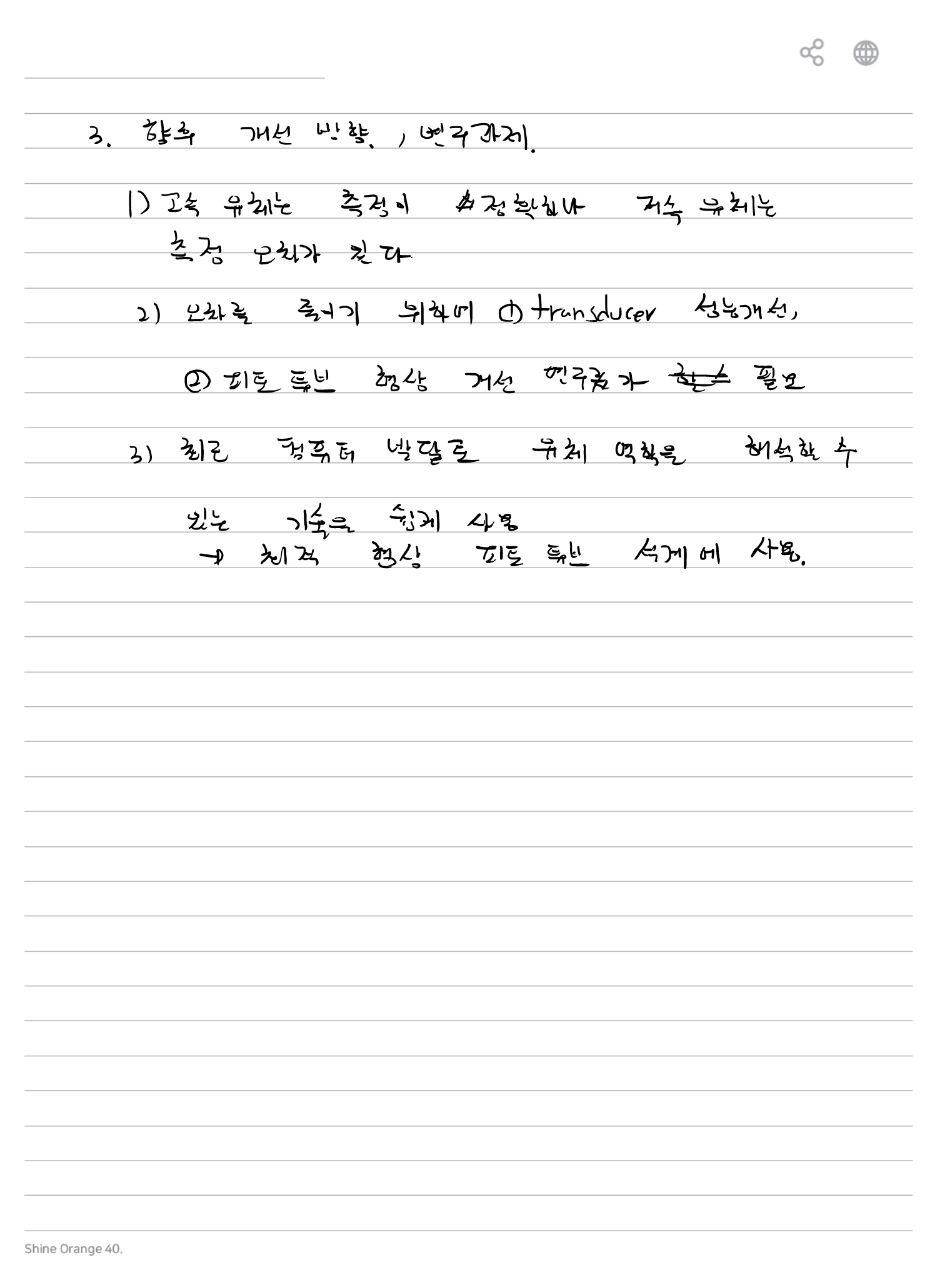 3. 향후 개선 방향, 연구과제.
1) 고속 유체는 측정이 정확하나 저속 유체는
측정 오차가 크다
2) 오차를 줄이기 위하여 ① transducer 성능개선,
② 피토 튜브 형상 개선 연구가 필요
3) 최근 컴퓨터 발달로 유체 역학을 해석할 수
있는 기술을 쉽게 사용
→ 최적 형상 피토 튜브 설계에 사용.
Shine Orange 40.